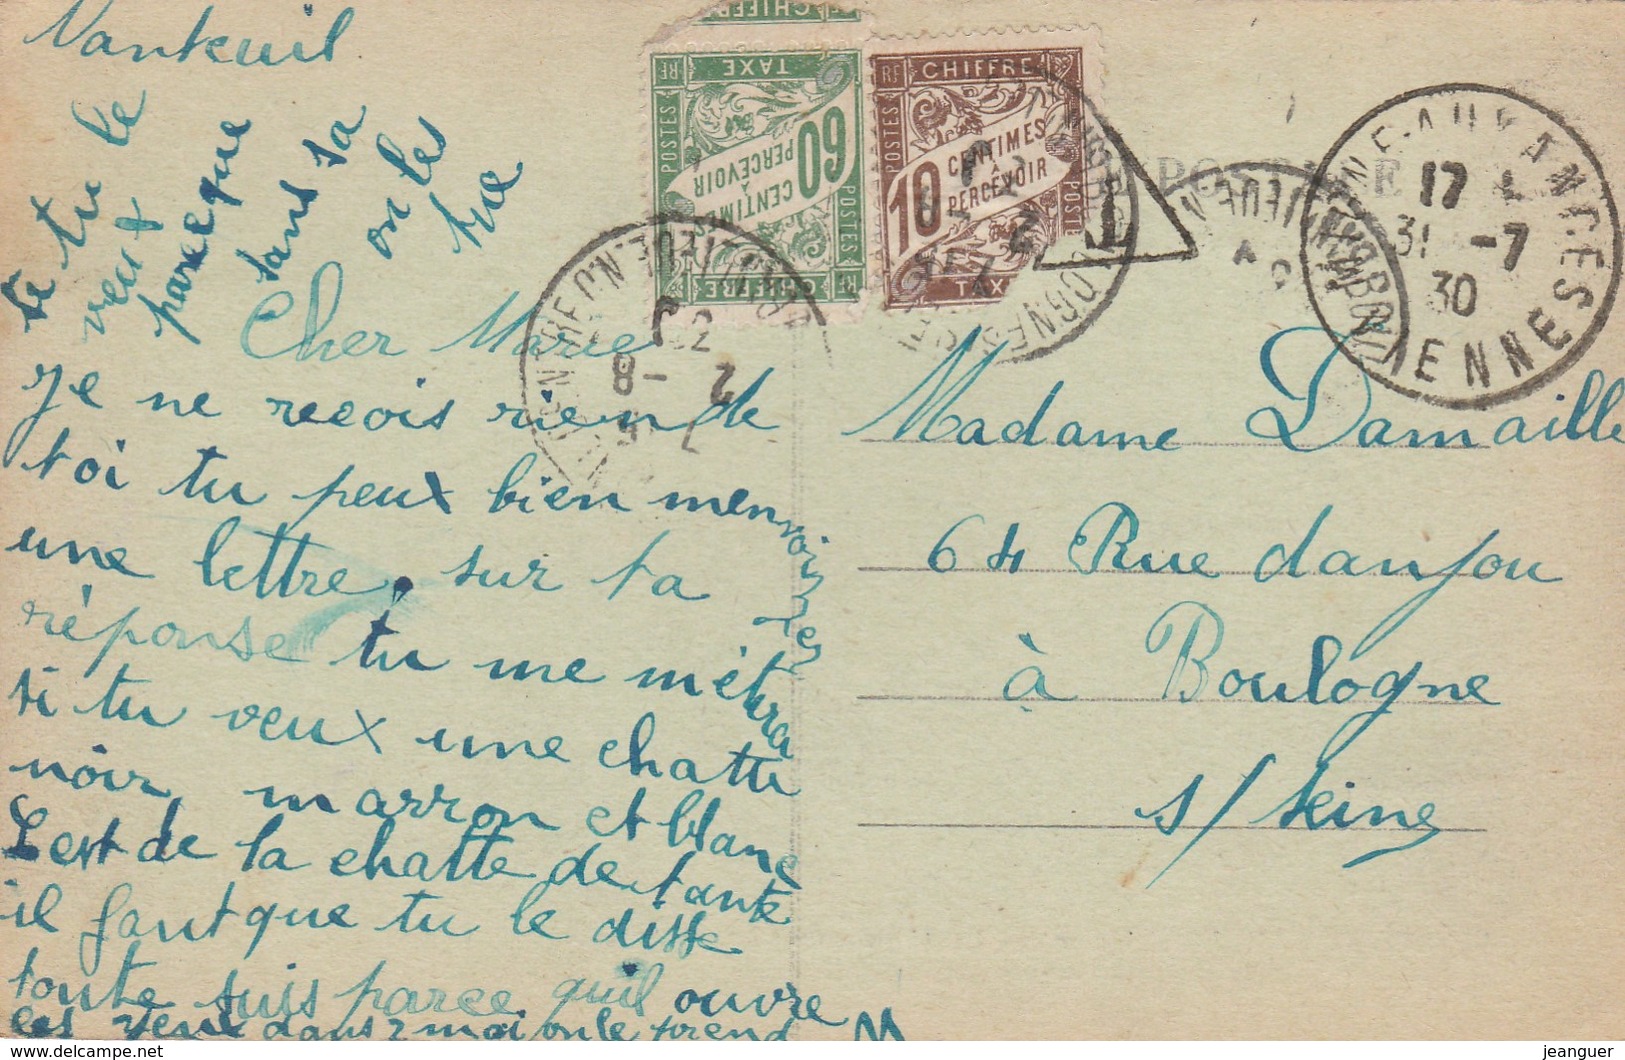 Nanteuil
Cher Marie
Je ne recois rien de
toi tu peux bien menvoinyer
une lettre, sur ta
réponse tu me métra
si tu veux une chatte
noir, marron et blanc
C est de la chatte de tante
il faut que tu le disse
toute suis parce quil ouvre
les yeux dans 2 moi on le prend
si tu le
veux
parceque
sans sa
on les
tue
Madame Damaille
64 Rue danjou
à Boulogne
s/ seine
CHIFFRE
TAXE
POSTES
RF
60
CENTIMES
À
PERCEVOIR
CHIFFRE
RF
CHIFFRE
POSTES
10
CENTIMES
À
PERCEVOIR
TAX
T
17
31 -7
30
8- 2
jeanguer